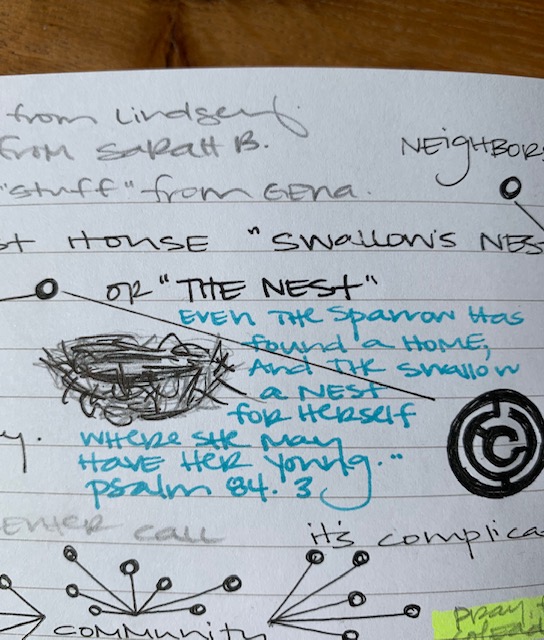 from Lindsey.
from Sarah B.
NEIGHBORS
"stuff" from GENA.
st House "Swallow's NES
or "THE NEST"
Even the Sparrow Has
found a HOME;
And THE Swallow
a NEST
for Herself
where SHE may
Have Her young."
psalm 84.3
y.
enter call
it's complica
community
pray f